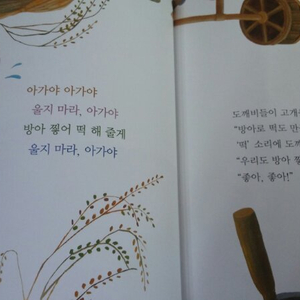 아가야 아가야
울지 마라, 아가야
방아 찧어 떡 해 줄게
울지 마라, 아가야
도깨비들이 고개
"방아로 떡도 만
'떡' 소리에 도깨
"우리도 방아 찧
"좋아, 좋아!"